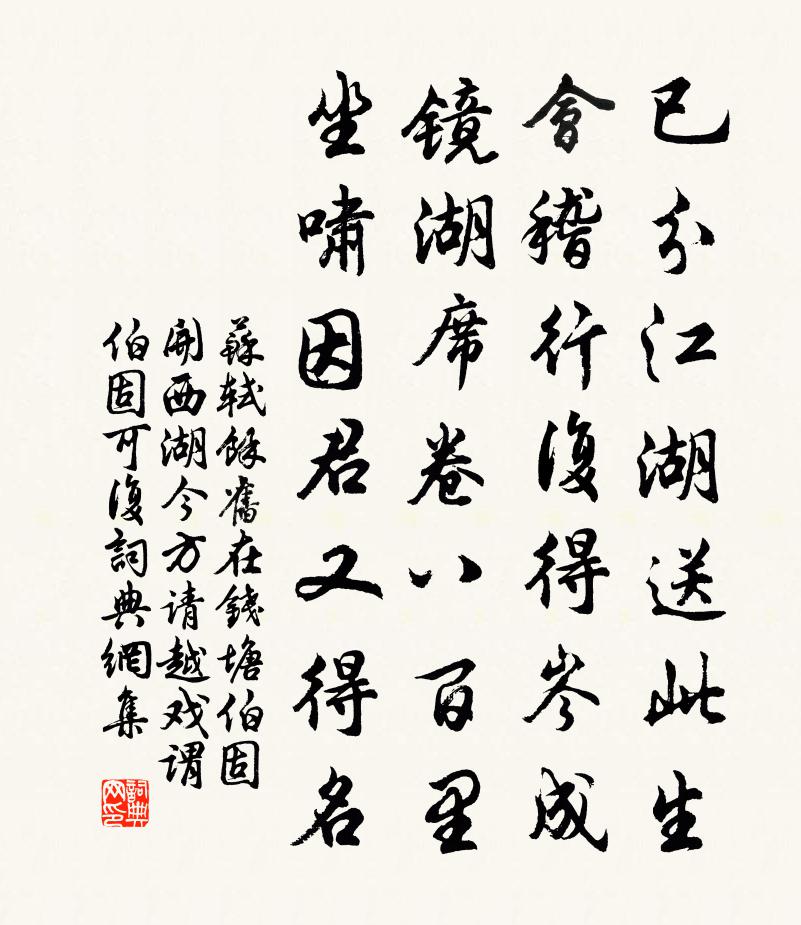 已分江湖送此生
會稽行復得岑成
鏡湖席卷八百里
坐嘯因君又得名
蘇軾餘舊在錢塘伯固
開西湖今方请越戏谓
伯固可復詞典網集
詞典网印